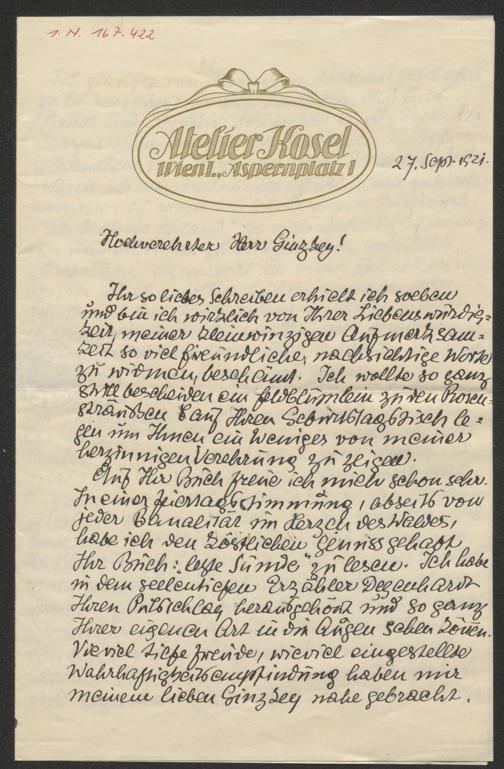 I. N. 167.422
Atelier Kosel
Wien I., Aspernplatz 1
27. Sept. 1921.
Hochverehrter Herr Ginzkey!
Ihr so liebes Schreiben erhielt ich soeben
und bin ich wirklich von Ihrer Liebenswürdig=
keit, meiner kleinwinzigen Aufmerksam=
keit so viel freundliche, nachsichtige Worte
zu widmen, beschämt. Ich wollte so ganz
still bescheiden ein Feldblümlein zu den Rosen-
sträussen auf Ihren Geburtstagstisch le=
gen um Ihnen ein Weniges von meiner
herzinnigen Verehrung zu zeigen.
Auf Ihr Buch freue ich mich schon sehr.
In einer Feiertagsstimmung, abseits von
jeder Banalität im Herzen des Waldes,
habe ich den köstlichen Genuss gehabt
Ihr Buch: letzte Sünde zu lesen. Ich habe
in dem seelentiefen Erzähler Degenhardt
Ihren Pulsschlag herausgehört und so ganz
Ihrer eigenen Art in die Augen sehen können.
Wieviel tiefe Freude, wieviel eingestellte
Wahrhaftigkeitsempfindung haben mir
meinem lieben Ginzkey nahe gebracht.